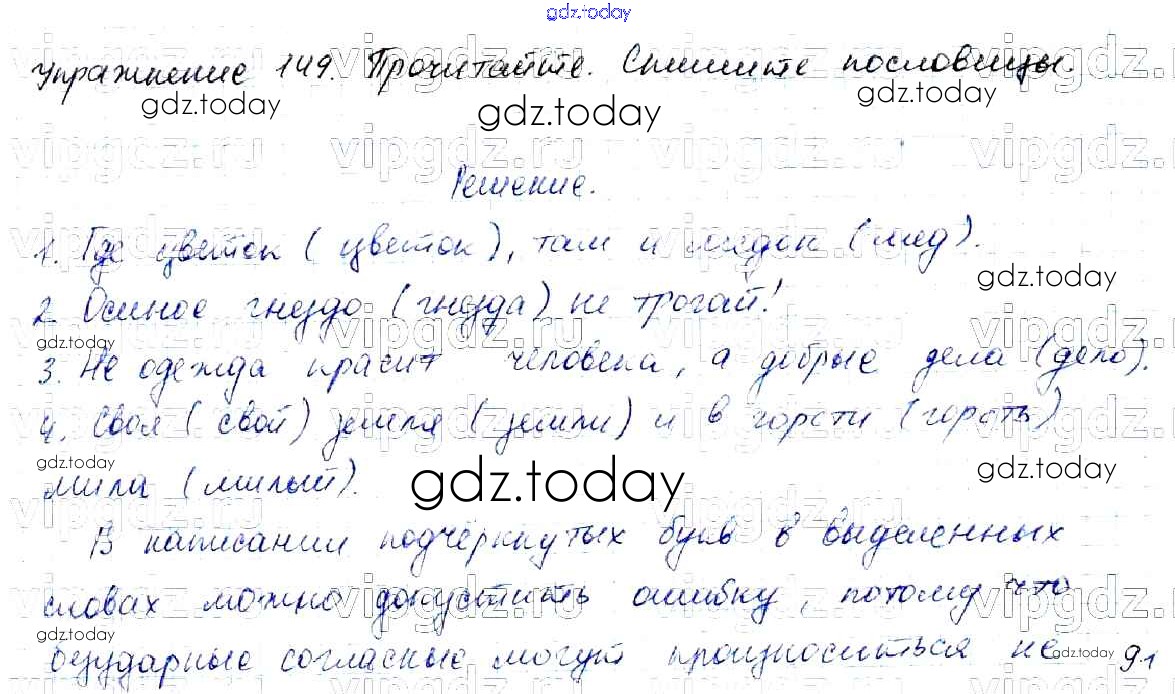 gdz.today
Упражнение 149. Прочитайте. Спишите пословицы.
gdz.today gdz.today gdz.today
vipgdz.ru vipgdz.ru vipgdz.ru
Решение.
1. Где цветок (цветок), там и медок (мёд).
gdz.today
2. Осиное гнездо (гнёзда) не трогай!
gdz.today
3. Не одежда красит человека, а добрые дела (дело).
4. Своя (свой) земля (земли) и в горсти (горсть)
gdz.today gdz.today gdz.today
мила (милый).
В написании подчёркнутых букв в выделенных
словах можно допустить ошибку, потому что
gdz.today
безударные согласные могут произноситься не
gdz.today 91